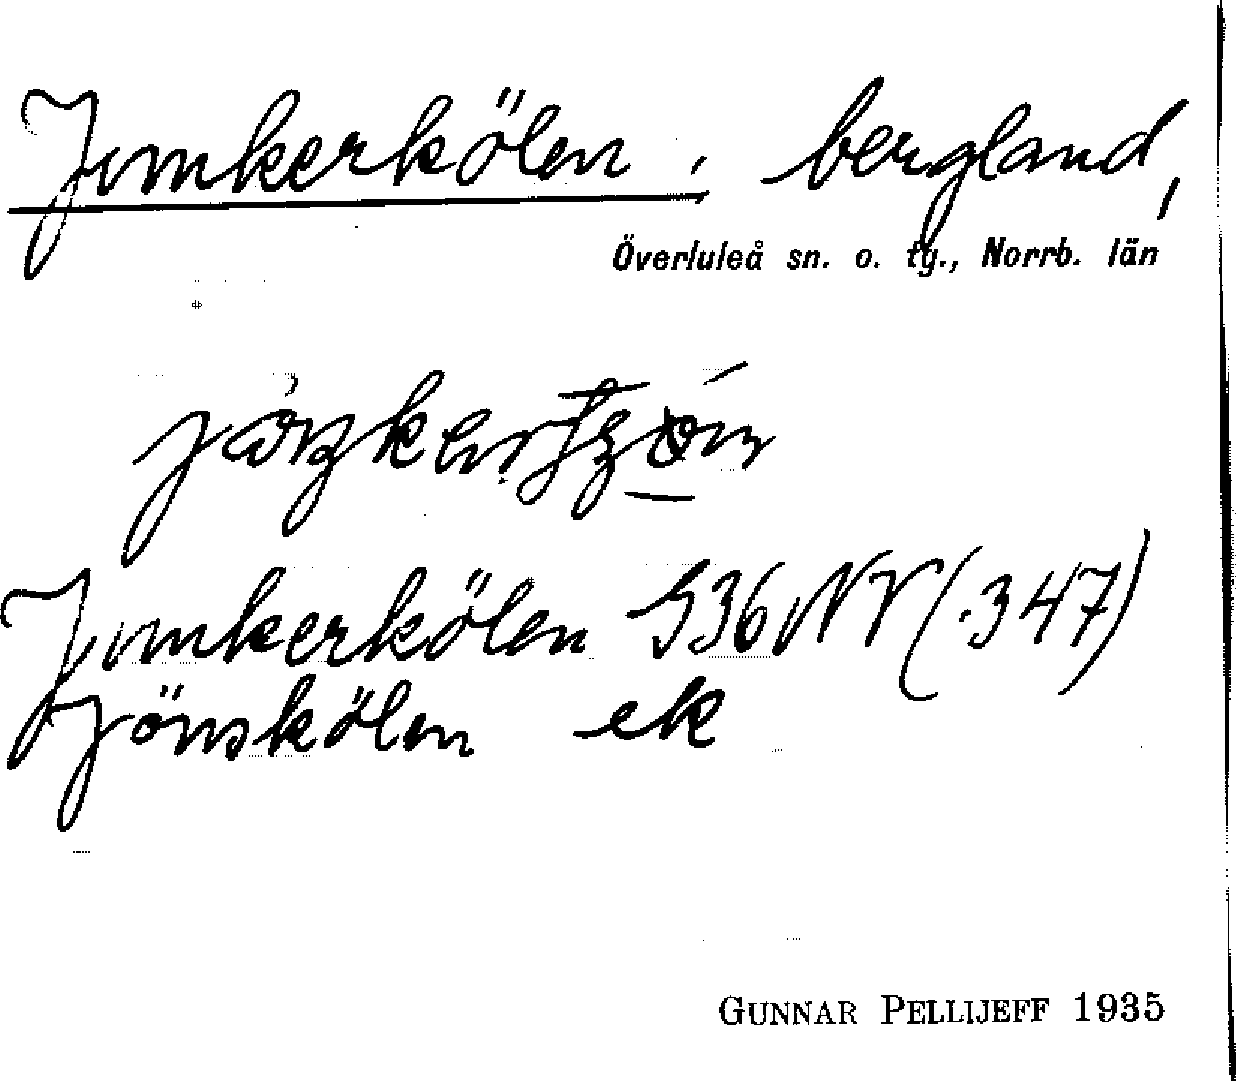 Junkerkölen, bergland,
Överluleå sn. o. tg., Norrb. län
Junkerkölen G36NV (.347)
Jönskölen ek
GUNNAR PELLIJEFF 1935